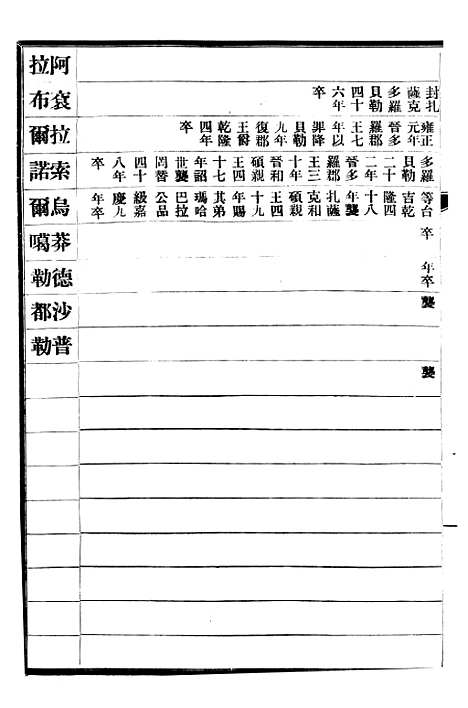 封扎
薩克
多羅
貝勒
四十
六年
卒
雍正
元年
晉多
羅郡
王七
年以
罪降
貝勒
九年
復郡
王爵
乾隆
四年
卒
多羅
貝勒
二十
二年
晉多
羅郡
王三
十年
晉和
碩親
王四
十七
年詔
世襲
罔替
四十
八年
卒
等台
吉乾
隆四
十八
年襲
扎薩
克和
碩親
王四
十九
年賜
其弟
瑪哈
巴拉
公品
級嘉
慶九
年卒
卒
年卒
襲
襲
阿袞拉索烏莽德沙普
拉布爾諾爾噶勒都勒